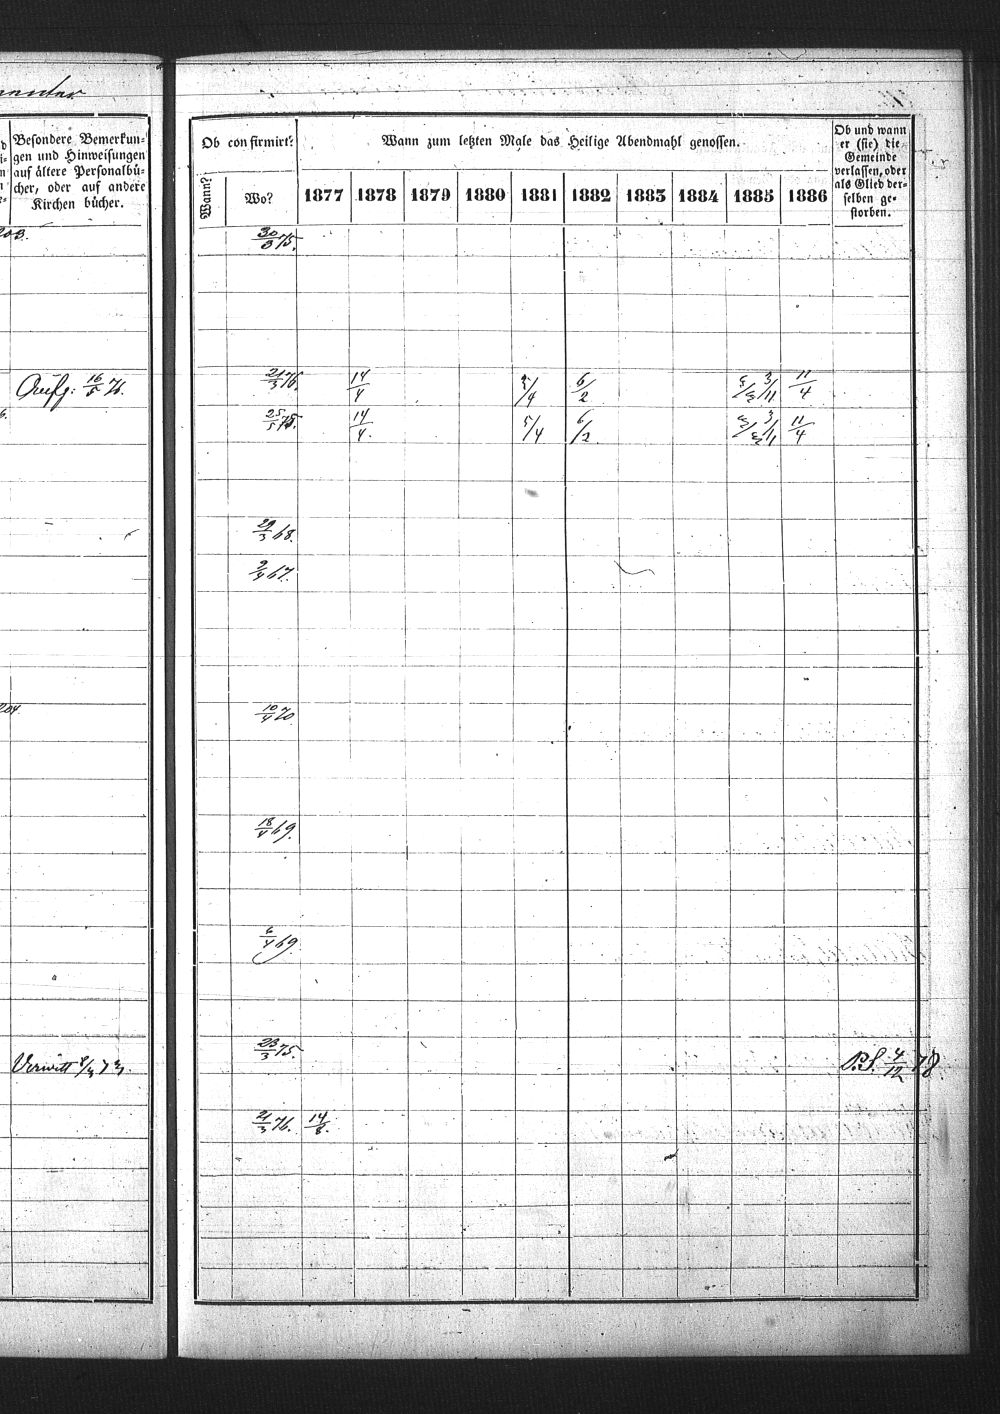 Besondere Bemerkun-
gen und Hinweisungen
auf ältere Personalbü-
cher, oder auf andere
Kirchen bücher.
203.
Aufg: 16/5 76.
204.
Verwitt
Ob confirmirt?
Wann?
Wo?
Wann zum letzten Male das Heilige Abendmahl genossen.
1877 1878 1879 1880 1881 1882 1883 1884 1885 1886
Ob und wann
er (sie) die
Gemeinde
verlassen, oder
als Glied der-
selben ge-
storben.
30/3 75.
21/3 76. 14/4 5/4 6/2 3/11 11/4
25/5 73. 14/4. 5/4 6/2 3/11 11/4
29/3 68.
9/4 67.
10/4 70
18/4 69.
6/4 69.
23/3 75. 4/12 78.
21/3 76. 14/8.